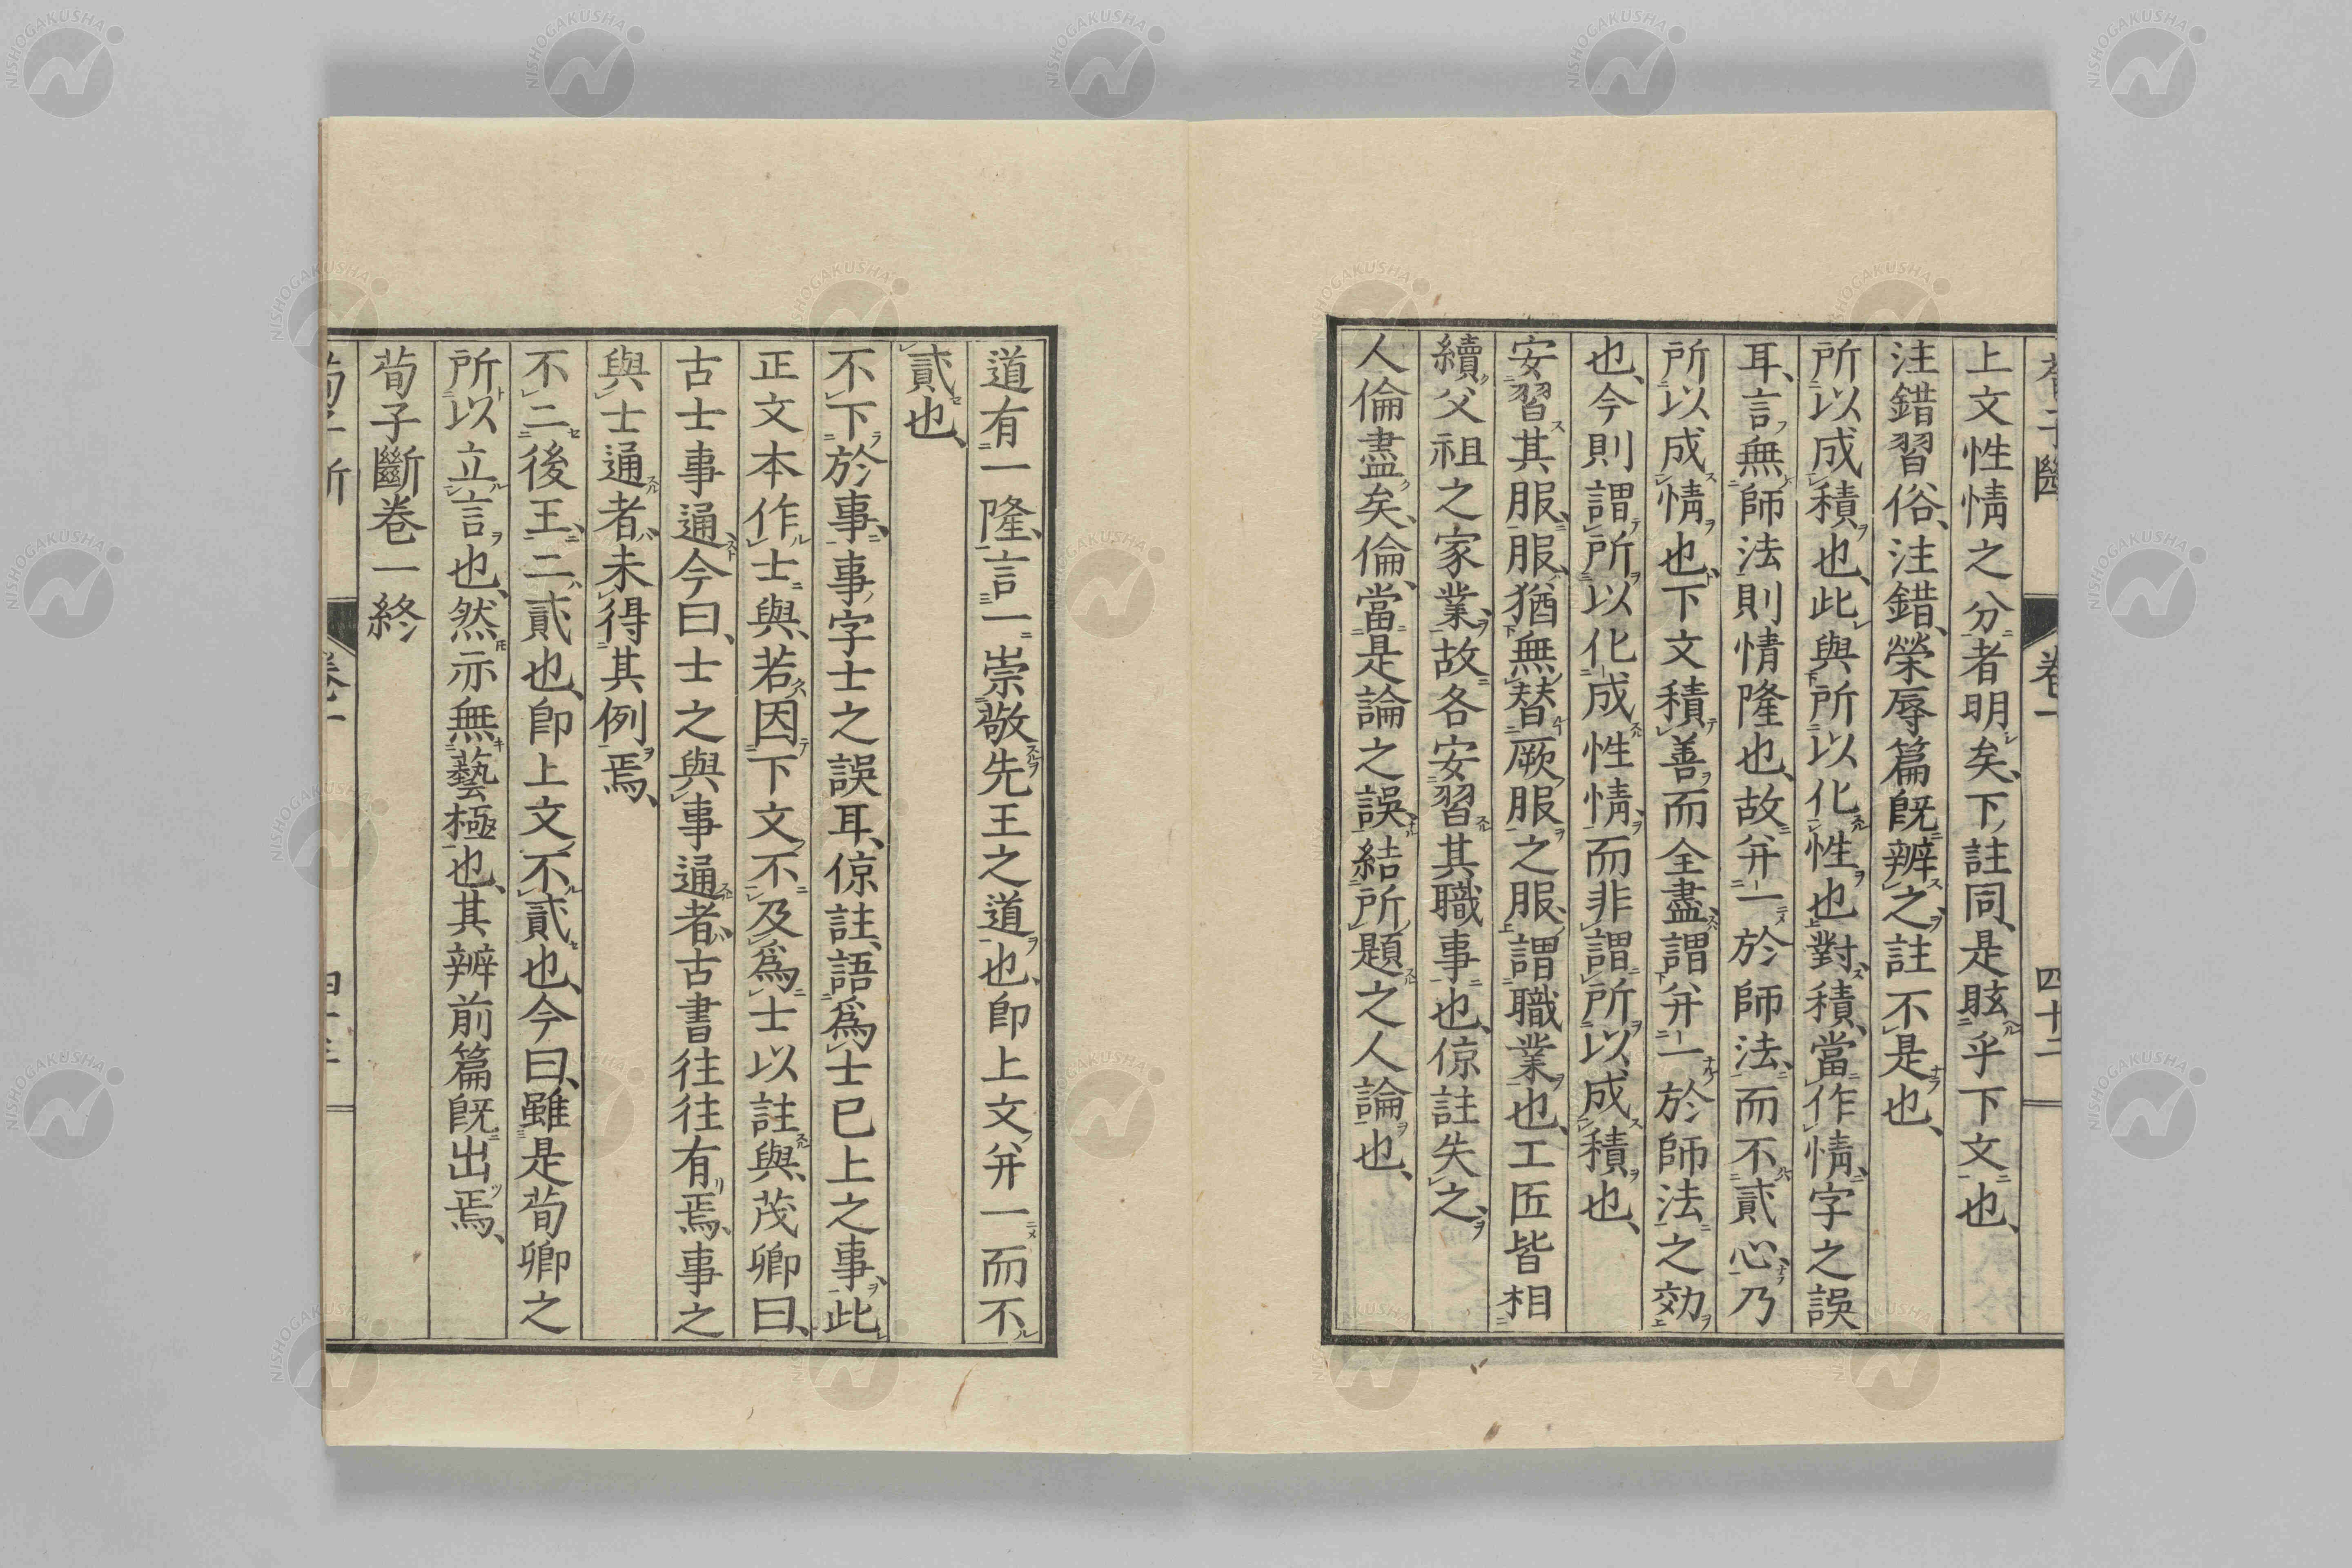 荀子斷 卷一 四十二
上文性情之分者明矣、下註同、是眩乎下文也、
注錯習俗、注錯、榮辱篇既辨之、註不是也、
所以成積也、此與所以化性也對、積、當作情、字之誤
耳、言無師法則情隆也、故并一於師法、而不貳心、乃
所以成情也、下文積善而全盡、謂并一於師法之効
也、今則謂所以化成性情、而非謂所以成積也、
安習其服、服猶無替厥服之服、謂職業也、工匠皆相
續父祖之家業、故各安習其職事也、倞註失之、
人倫盡矣、倫、當是論之誤、結所題之人論也、
道有一隆、言一崇敬先王之道也、即上文并一而不
貳也、
不下於事、事字士之誤耳、倞註、語為士已上之事、此
正文本作士與、若因下文不及為士以註與、茂卿曰、
古士事通、今曰、士之與事通者、古書往往有焉、事之
與士通者、未得其例焉、
不二後王、二貳也、即上文不貳也、今曰、雖是荀卿之
所以立言也、然亦無藝極也、其辨前篇既出焉、
荀子斷卷一終
NISHOGAKUSHA